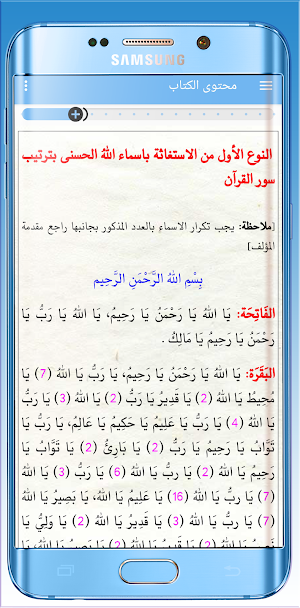 SAMSUNG
محتوى الكتاب
النوع الأول من الاستغاثة باسماء اللهُ الحسنى بترتيب
سور القرآن
[ملاحظة: يجب تكرار الاسماء بالعدد المذكور بجانبها راجع مقدمة
المؤلف]
بِسْمِ اللهُ الرَّحْمَنِ الرَّحِيم
الفَاتِحَة: يَا اللهُ يَا رَحْمَنُ يَا رَحِيمُ، يَا اللهُ يَا رَبُّ يَا
رَحْمَنُ يَا رَحِيمُ يَا مَالِكُ .
البَقَرَة: يَا اللهُ يَا رَحْمَنُ يَا رَحِيمُ، يَا رَبُّ يَا اللهُ (7) يَا
مُحِيطُ يَا اللهُ (2) يَا قَدِيرُ يَا رَبُّ (2) يَا اللهُ (3) يَا رَبُّ يَا
اللهُ (4) يَا رَبُّ يَا عَلِيمُ يَا حَكِيمُ يَا عَالِمُ، يَا رَبُّ يَا
تَوَّابُ يَا رَحِيمُ يَا رَبُّ (2) يَا بَارِئُ (2) يَا تَوَّابُ يَا
رَحِيمُ يَا اللهُ (2) يَا رَبُّ يَا اللهُ (6) يَا رَبُّ (3) يَا اللهُ
(7) يَا رَبُّ يَا اللهُ (16) يَا عَلِيمُ يَا اللهُ، يَا بَصِيرُ يَا اللهُ
(7) يَا رَبُّ يَا اللهُ (3) يَا قَدِيرُ يَا اللهُ (2) يَا وَلِيُّ يَا